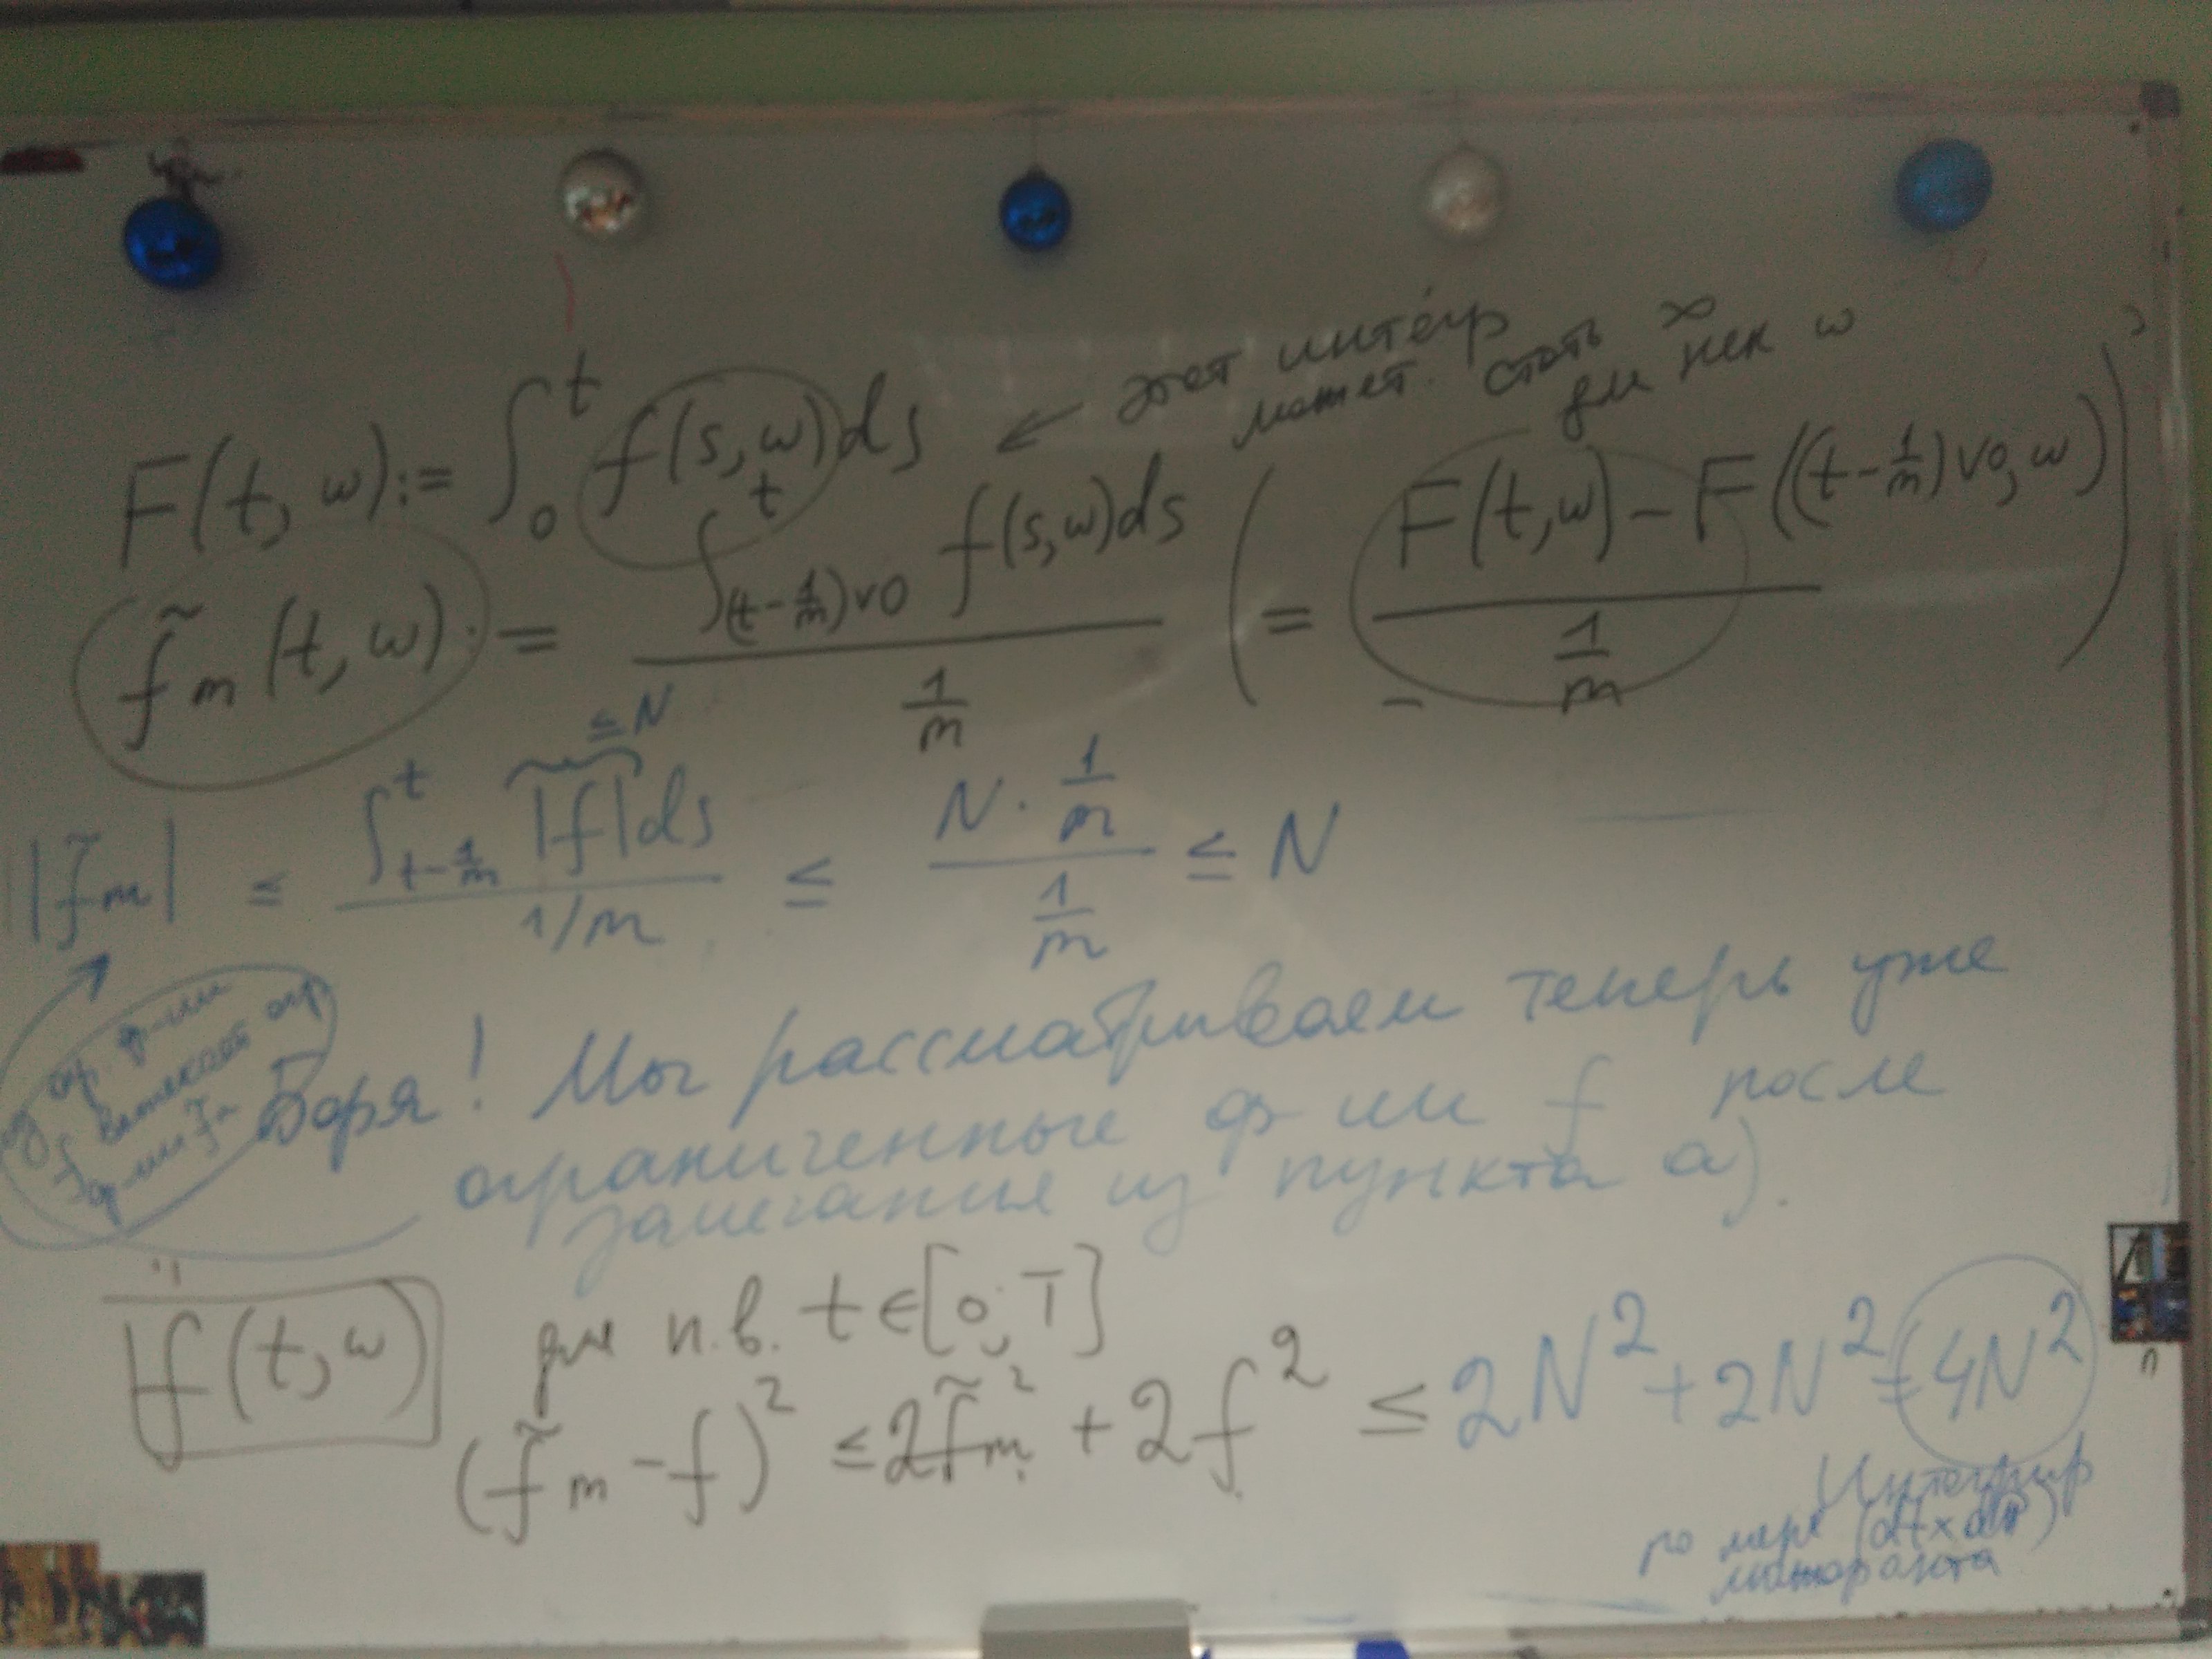 F(t, ω) := ∫₀ᵗ f(s, ω) ds ← этот интегр
может стать ∞
для нек ω
f̃ₘ(t, ω) := ∫_{(t-1/m)∨0}^t f(s,ω)ds / (1/m) ( = (F(t,ω) - F((t-1/m)∨0, ω)) / (1/m) )
|f̃ₘ| ≤ ∫_{t-1/m}^t |f| ds / 1/m ≤ (N · 1/m) / (1/m) ≤ N
≤ N
огр. ф-ии
f
ф-ии f̃ₘ
Боря! Мы рассматриваем теперь уже
ограниченные ф-ии f после
замечания из пункта а).
f(t, ω) для п.в. t ∈ [0; T]
(f̃ₘ - f)² ≤ 2f̃ₘ² + 2f² ≤ 2N² + 2N² = 4N²
Интегрир
по мере (dt×dP)
мажоранта